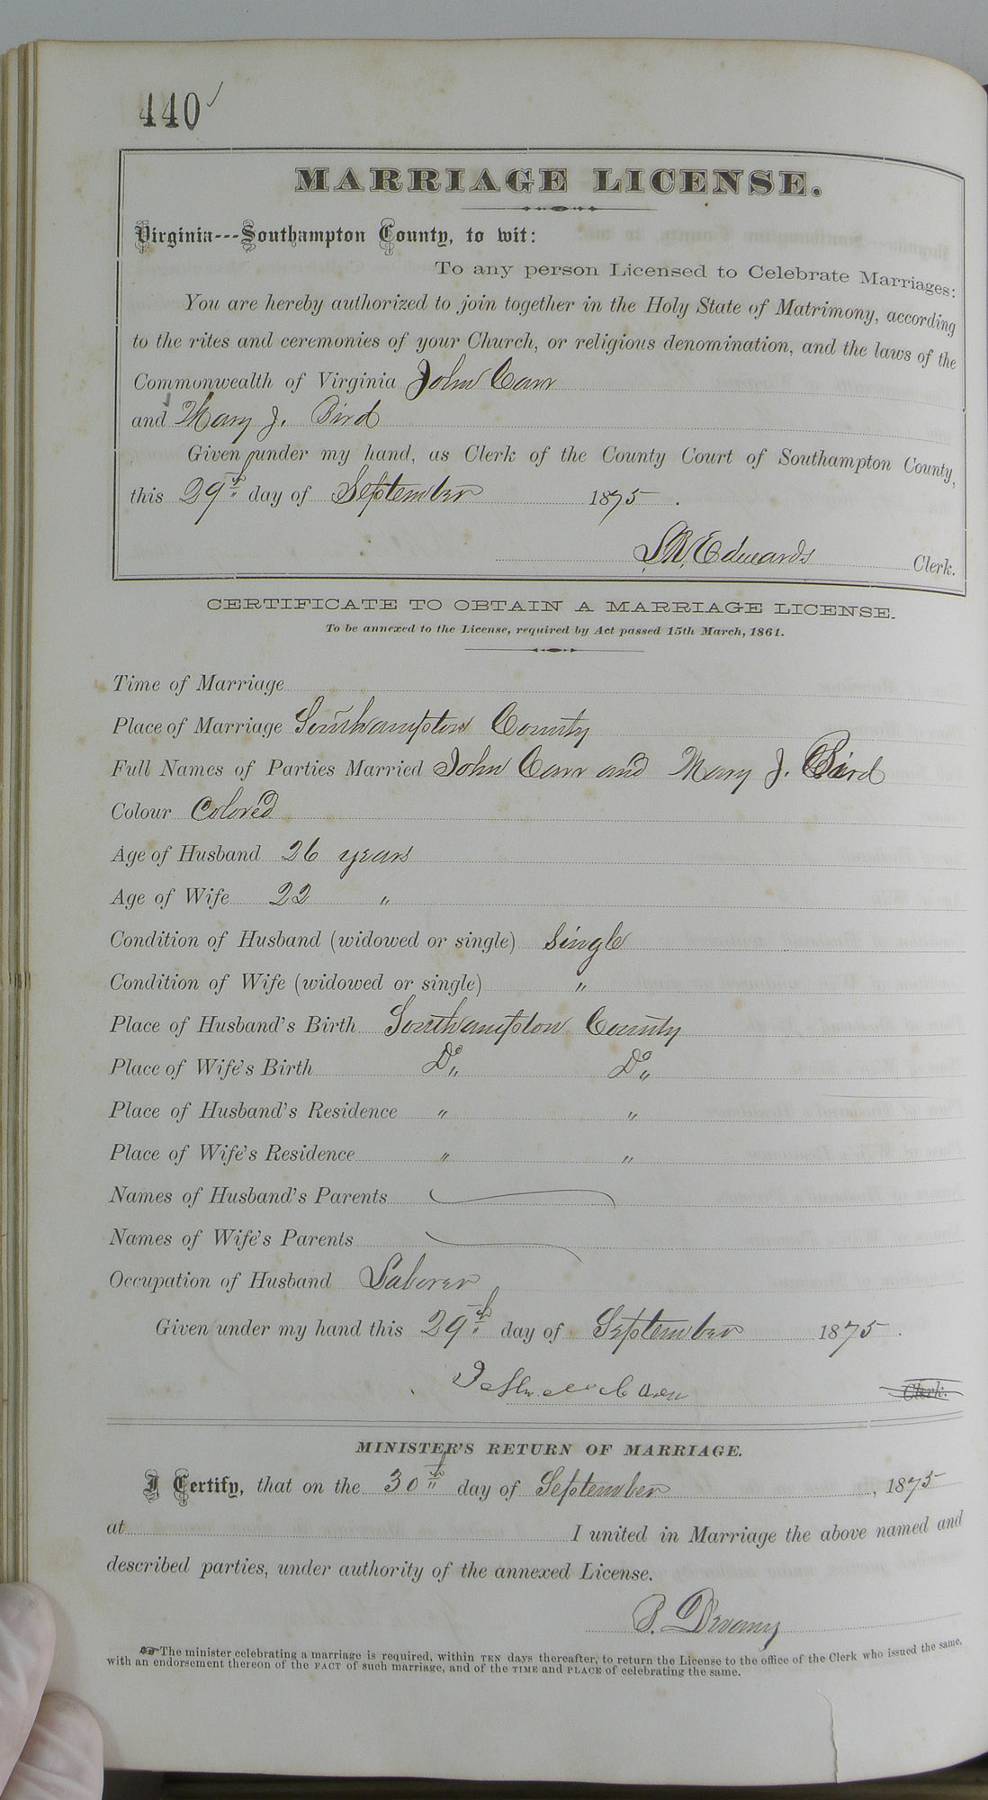 440✓
MARRIAGE LICENSE.
Virginia---Southampton County, to wit:
To any person Licensed to Celebrate Marriages:
You are hereby authorized to join together in the Holy State of Matrimony, according
to the rites and ceremonies of your Church, or religious denomination, and the laws of the
Commonwealth of Virginia John Carr
and Mary J. Bird
Given under my hand, as Clerk of the County Court of Southampton County,
this 29th day of September 1875.
Edwards Clerk.
CERTIFICATE TO OBTAIN A MARRIAGE LICENSE.
To be annexed to the License, required by Act passed 15th March, 1861.
Time of Marriage
Place of Marriage Southampton County
Full Names of Parties Married John Carr and Mary J. Bird
Colour Colored
Age of Husband 26 years
Age of Wife 22 "
Condition of Husband (widowed or single) Single
Condition of Wife (widowed or single) "
Place of Husband's Birth Southampton County
Place of Wife's Birth Do " Do "
Place of Husband's Residence " "
Place of Wife's Residence " "
Names of Husband's Parents
Names of Wife's Parents
Occupation of Husband Laborer
Given under my hand this 29th day of September 1875.
Clerk.
MINISTER'S RETURN OF MARRIAGE.
I Certify, that on the 30th day of September, 1875
at I united in Marriage the above named and
described parties, under authority of the annexed License.
The minister celebrating a marriage is required, within TEN DAYS thereafter, to return the License to the office of the Clerk who issued the same,
with an endorsement thereon of the FACT of such marriage, and of the TIME and PLACE of celebrating the same.